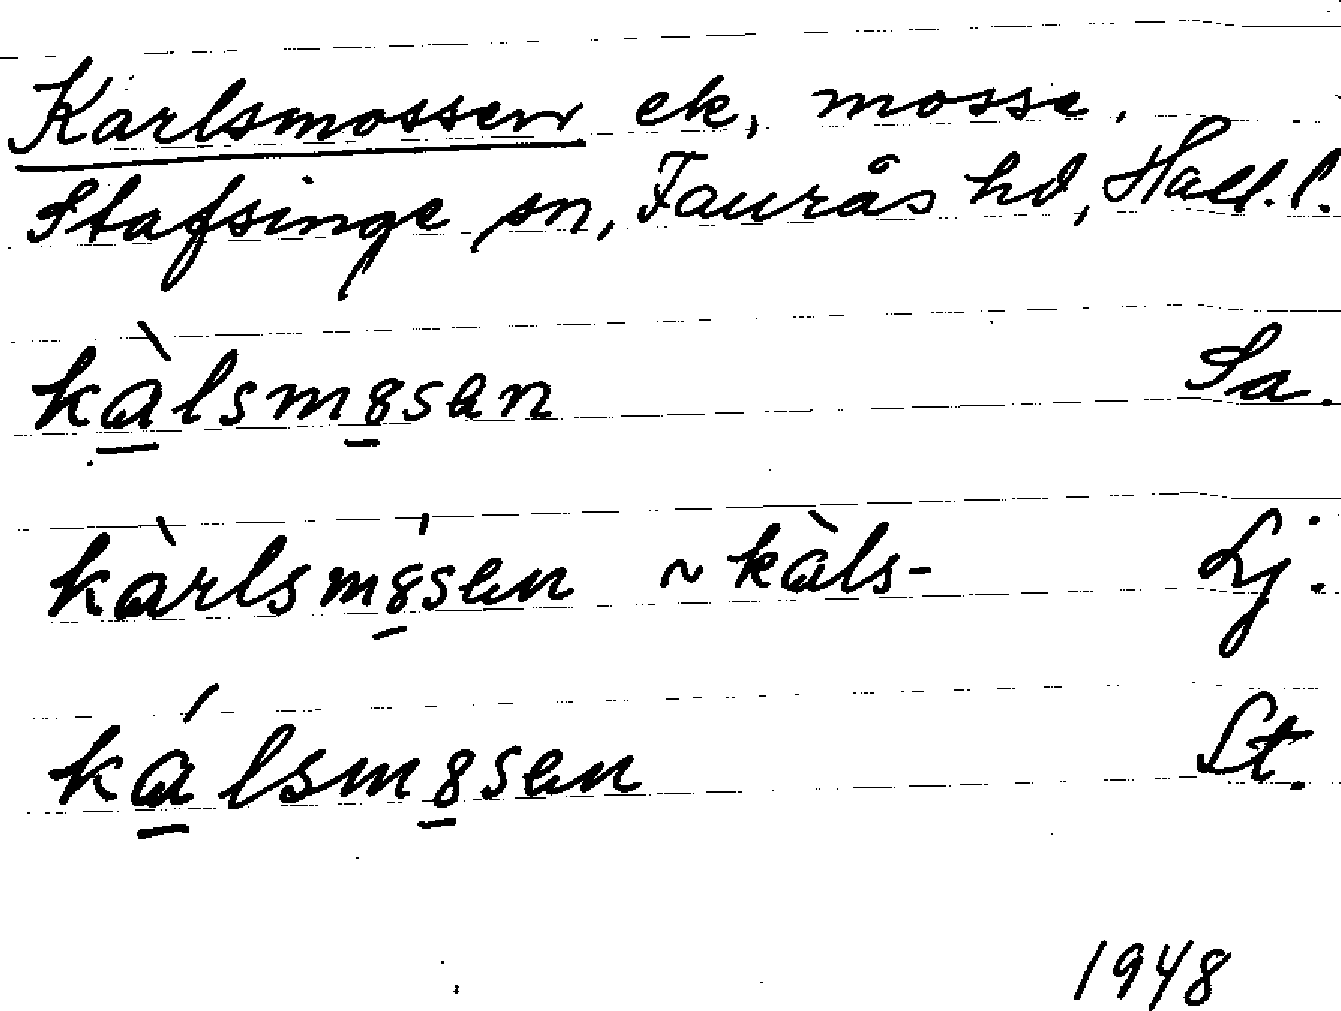 Karlsmossen ek, mosse.
Stafsinge sn, Faurås hd, Hall. l.
kàlsm8sen Sa.
kàrlsm8́sen ~ kàls- Lj.
kálsm8sen St.
1948